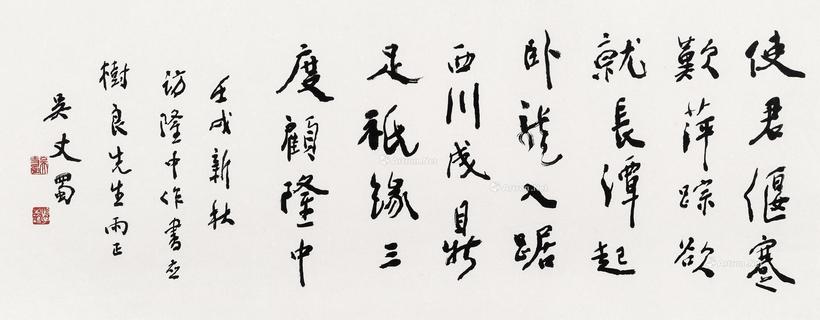 使君偃蹇
歎萍踪欲
就長潭起
卧龍入踞
西川成鼎
足祇緣三
度顧隆中
壬戌新秋
訪隆中作書应
樹良先生雨正
吳丈蜀